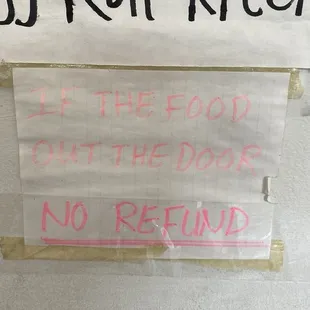 Roll Kitch
IF THE FOOD
OUT THE DOOR
NO REFUND